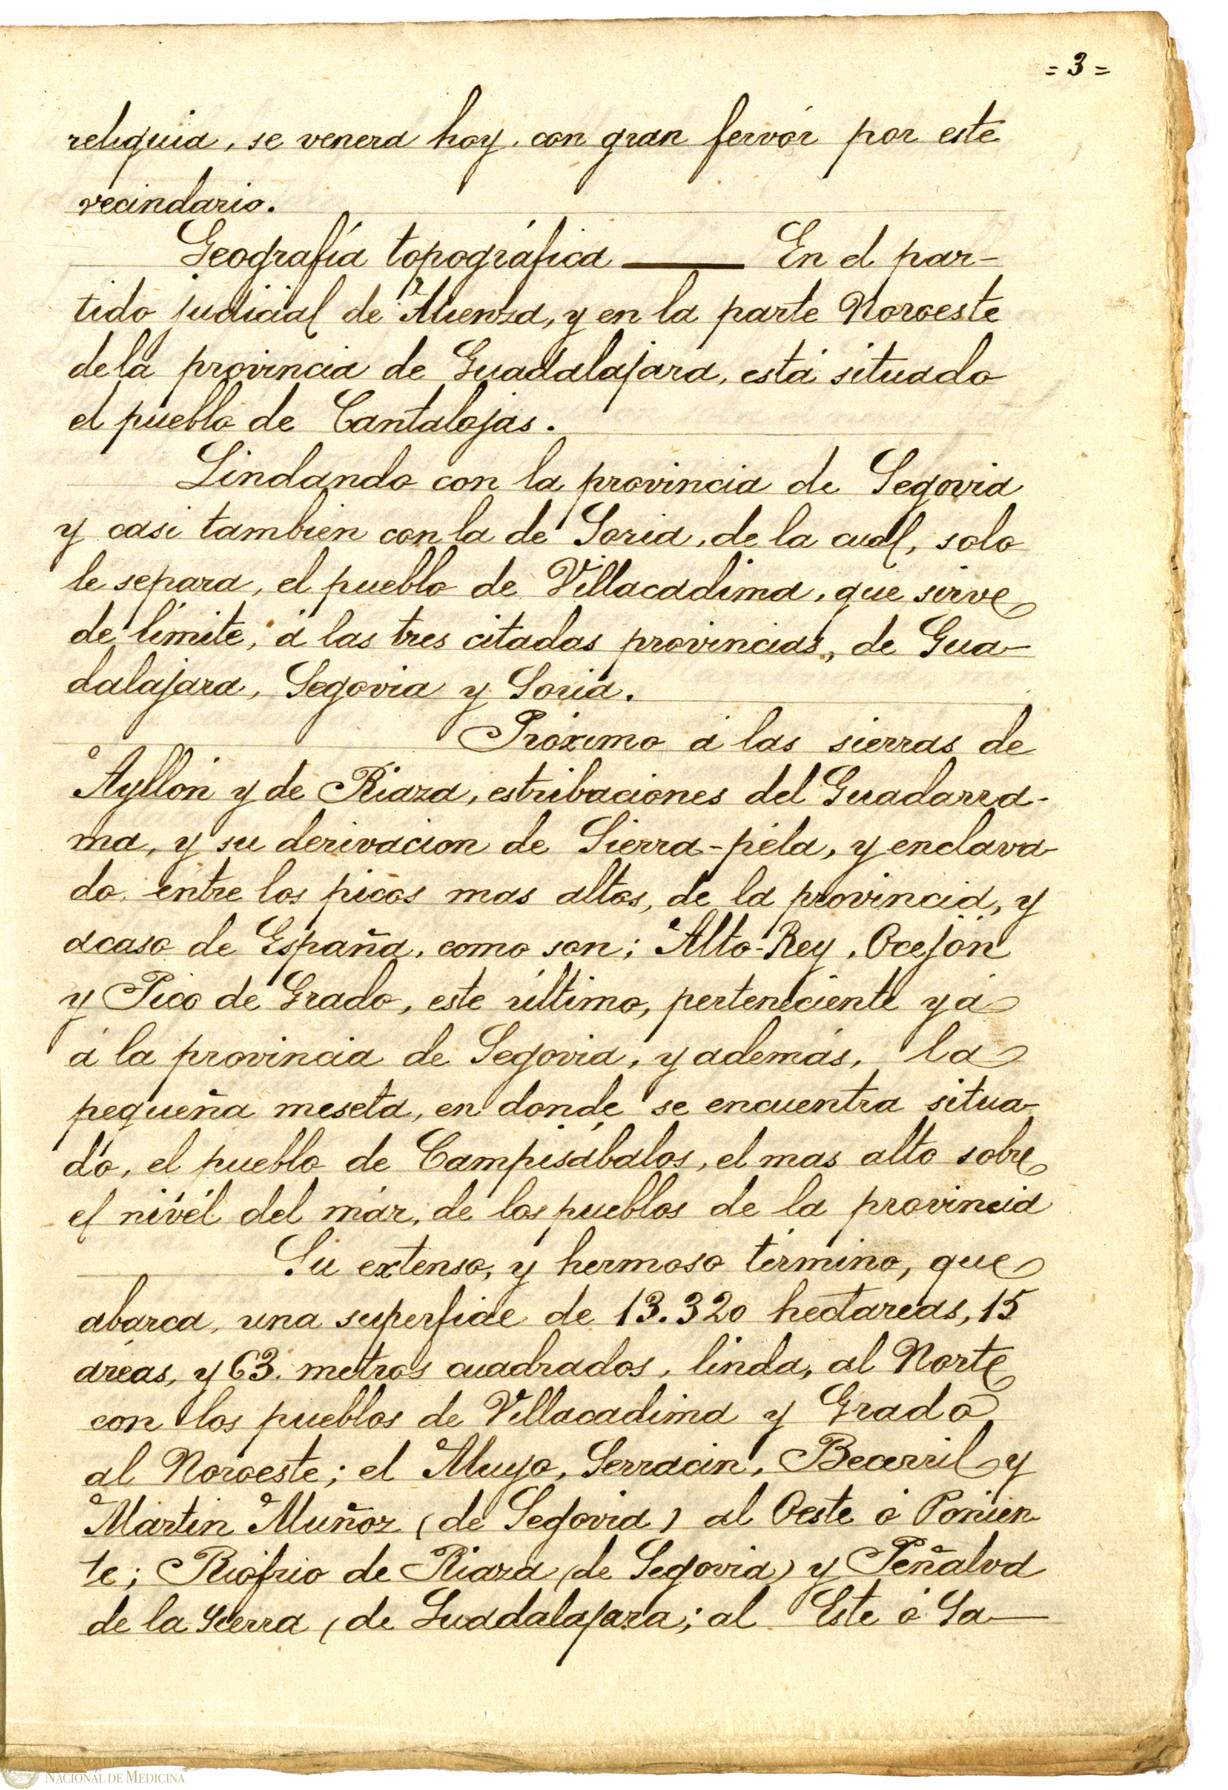 = 3 =
reliquia, se venera hoy, con gran fervór por este
vecindario.
Geografía topográfica ——— En el par-
tido judicial de Atienza, y en la parte Noroeste
de la provincia de Guadalajara, está situado
el pueblo de Cantalojas.
Lindando con la provincia de Segovia
y casi tambien con la de Soria, de la cual, solo
le separa, el pueblo de Villacadima, que sirve
de límite, á las tres citadas provincias, de Gua-
dalajara, Segovia y Soria.
Próximo á las sierras de
Ayllón y de Riaza, estribaciones del Guadarra-
ma, y su derivacion de Sierra-péla, y enclava-
do entre los picos mas altos, de la provincia, y
acaso de España, como son; Alto-Rey, Ocejón
y Pico de Grado, este último, perteneciente yá
á la provincia de Segovia, y además, la
pequeña meseta, en donde se encuentra situa-
dó, el pueblo de Campisábalos, el mas alto sobre
el nivél del már, de los pueblos de la provincia
Su extenso, y hermoso término, que
abarca, una superficie de 13.320 hectareas, 15
áreas, y 63. metros cuadrados, linda, al Norte
con los pueblos de Villacadima y Grado
al Noroeste; el Muyo, Serracin, Becerril y
Martin Muñoz (de Segovia) al Oeste ó Ponien-
te; Riofrio de Riaza (de Segovia) y Peñalva
de la Sierra (de Guadalajara; al Este ó Sa-
REAL ACADEMIA
NACIONAL DE MEDICINA